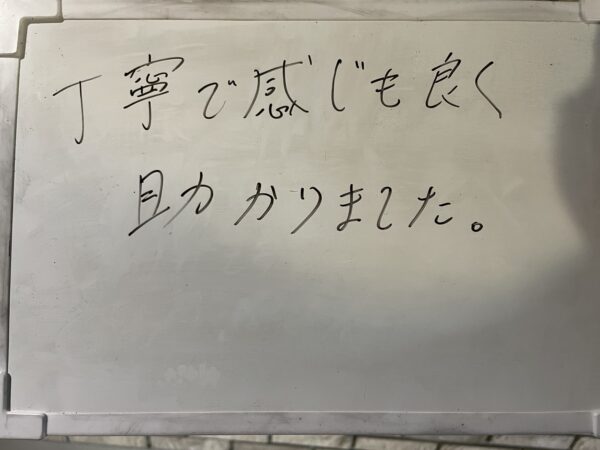 丁寧で感じも良く
助かりました。